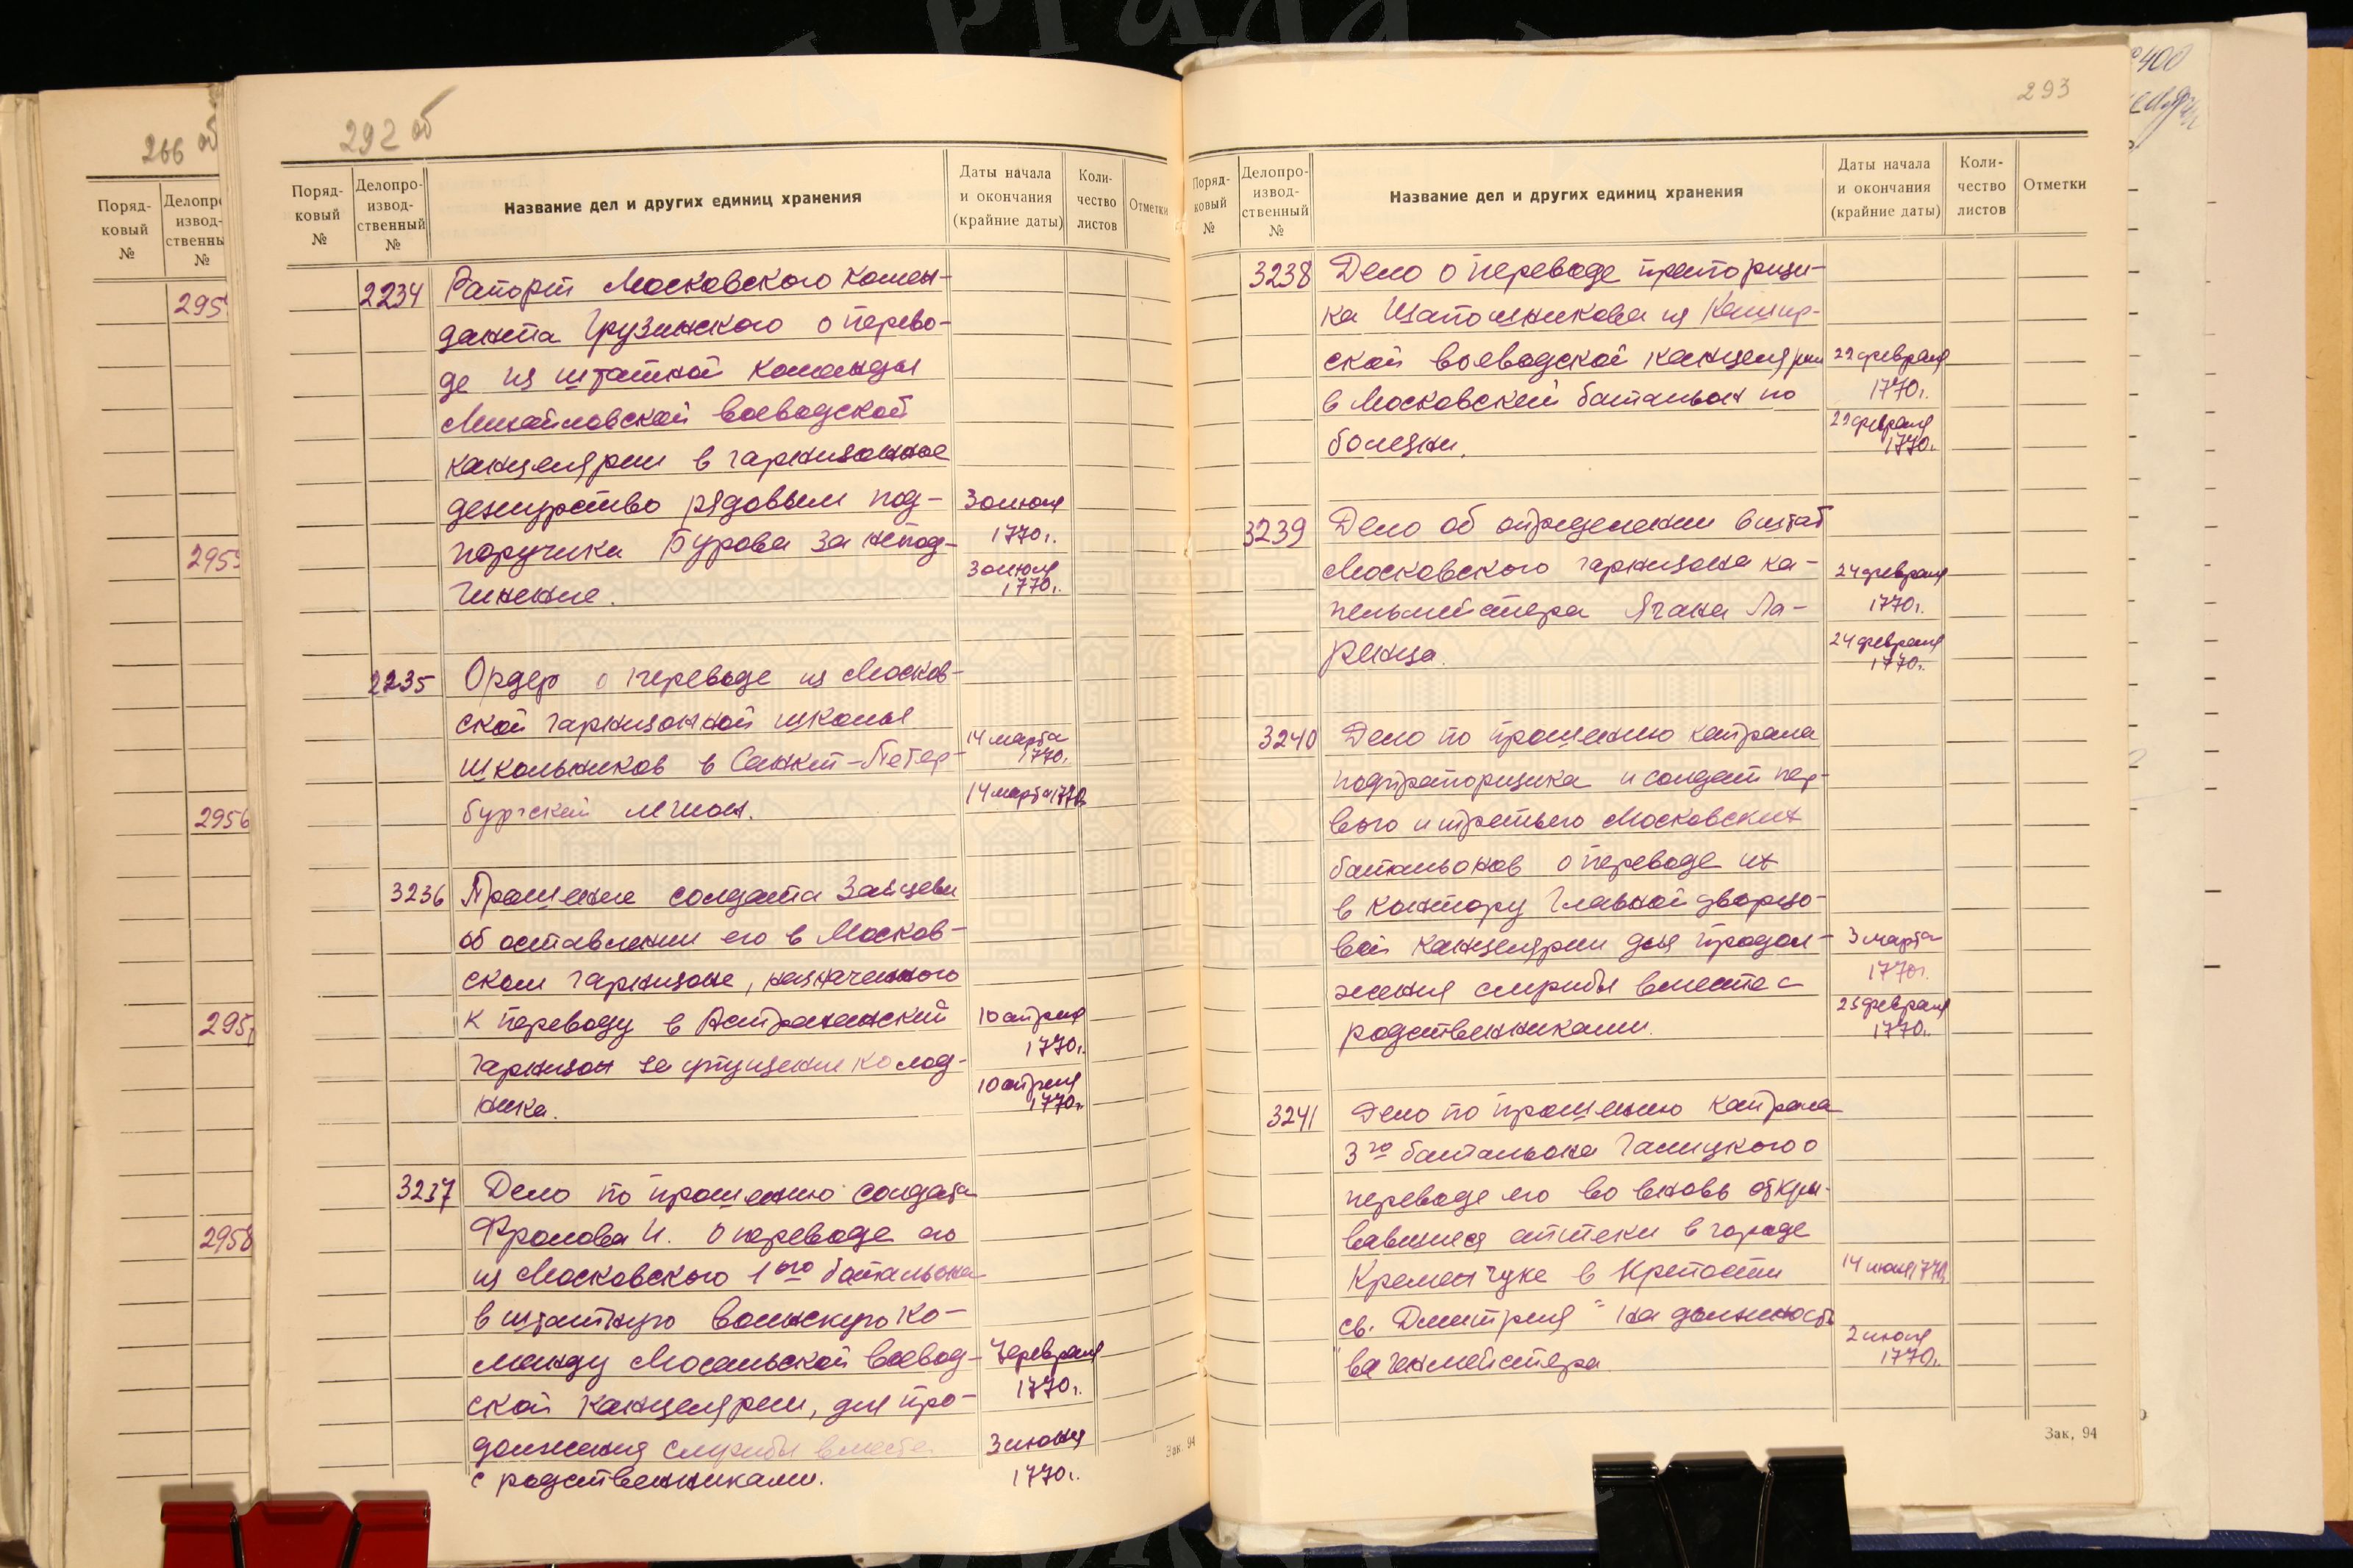 266 об
Поряд-
ковый
№
Делопр
извод-
ственны
№
295
2956
295
2958
292 об
Поряд-
ковый
№
Делопро-
извод-
ственный
№
Название дел и других единиц хранения
Даты начала
и окончания
(крайние даты)
Коли-
чество
листов
Отметки
2234 Рапорт Московского комен-
данта Грузинского о перево-
де из штатной команды
Михайловской воеводской
канцелярии в гарнизонное
дежурство рядовым под- 3 июля
поручика Бурова за непод- 1770г.
чинение. 3 июля 1770г.
2235 Ордер о переводе из Москов-
ской гарнизонной школы
школьников в Санкт-Петер- 14 марта 1770г.
бургский легион. 14 марта 1770г.
3236 Прошение солдата Зайцева
об оставлении его в Москов-
ском гарнизоне, назначенного
к переводу в Астраханский 10 апреля
гарнизон за упущение колод- 1770г.
ника. 10 апреля 1770г.
3237 Дело по прошению солдата
Фролова И. о переводе его
из Московского 1ого батальона
в штатную воинскую ко-
манду Мосальской воевод- 7 февраля
ской канцелярии, для про- 1770г.
должения службы вместе 3 июня
с родственниками. 1770г.
Зак. 94
293
Поряд-
ковый
№
Делопро-
извод-
ственный
№
Название дел и других единиц хранения
Даты начала
и окончания
(крайние даты)
Коли-
чество
листов
Отметки
3238 Дело о переводе прапорщи-
ка Шапошникова из Кашир-
ской воеводской канцелярии 22 февраля
в Московский батальон по 1770г.
болезни. 22 февраля 1770г.
3239 Дело об определении в штат
Московского гарнизона ка- 24 февраля
пельмейстера Ягана Ла- 1770г.
ренца. 24 февраля 1770г.
3240 Дело по прошению капрала
подпрапорщика и солдат пер-
вого и третьего Московских
батальонов о переводе их
в контору Главной дворцо-
вой канцелярии для продол- 3 марта
жения службы вместе с 1770г.
родственниками. 25 февраля 1770г.
3241 Дело по прошению капрала
3го батальона Галицкого о
переводе его во вновь откры-
вавшиеся аптеки в городе
Кременчуке в крепости 14 июня 1770г.
св. Дмитрия" на должность
вагенмейстера. 2 июля 1770г.
Зак, 94
400